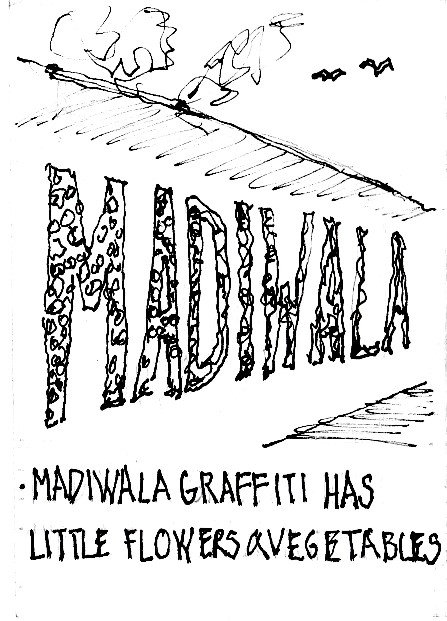 MADIWALA
MADIWALA GRAFFITI HAS
LITTLE FLOWERS & VEGETABLES